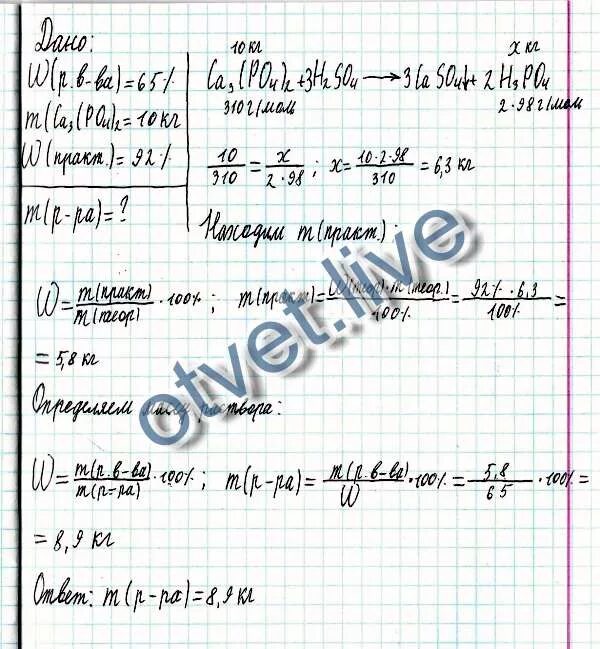 Дано:
W(р.в-ва)=65%
m(Ca₃(PO₄)₂=10кг
W(практ.)=92%
m(р-ра)=?
10кг x кг
Ca₃(PO₄)₂+3H₂SO₄→3CaSO₄+2H₃PO₄
310г/моль 2·98г/моль
10/310=x/2·98; x=10·2·98/310=6,3 кг
Находим m(практ.):
W=m(практ)/m(теор)·100%; m(практ)=W(теор)·m(теор.)/100%=92%·6,3/100%=
=5,8 кг
Определяем массу раствора:
W=m(р.в-ва)/m(р-ра)·100%; m(р-ра)=m(р.в-ва)/W·100%=5,8/65·100%=
=8,9 кг
Ответ: m(р-ра)=8,9кг
otvet.live